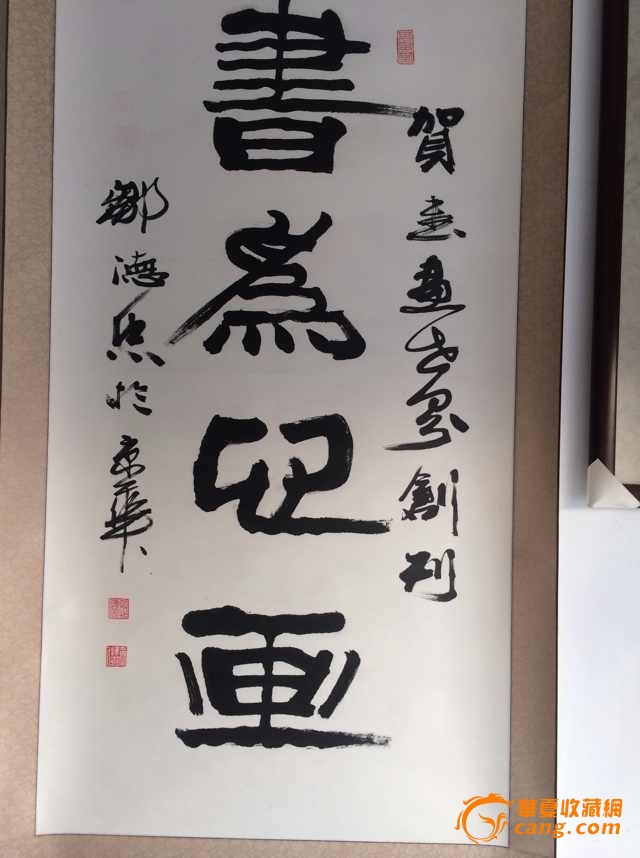 賀書畫世界創刊
書為心画
鄒德忠於京華
華夏收藏網
cang.com